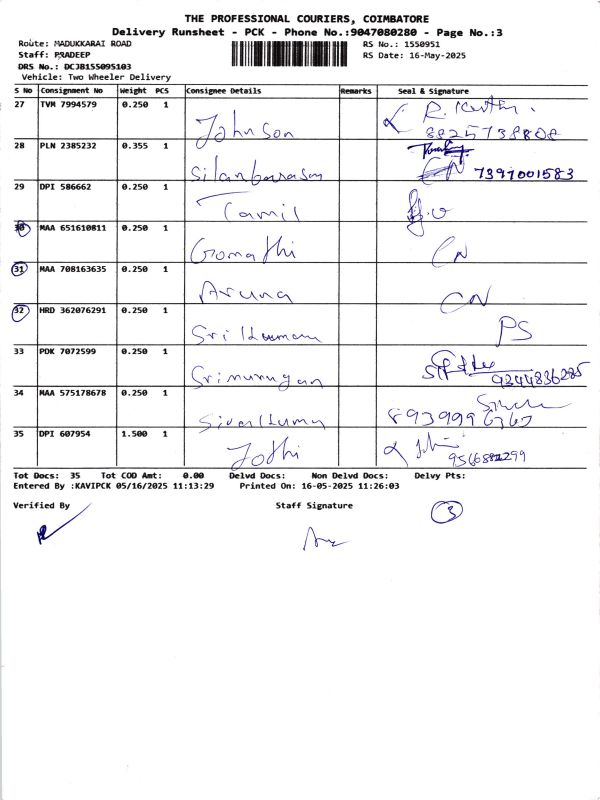 THE PROFESSIONAL COURIERS, COIMBATORE
Delivery Runsheet - PCK - Phone No.:9047080280 - Page No.:3
Route: MADUKKARAI ROAD
RS No.: 1550951
Staff: PRADEEP
RS Date: 16-May-2025
DRS No.: DCJB155095103
Vehicle: Two Wheeler Delivery
S No Consignment No Weight PCS Consignee Details Remarks Seal & Signature
27 TVM 7994579 0.250 1
Johnson
R. Keerthi.
8825738808
28 PLN 2385232 0.355 1
Silanbarasan
CN 7397001583
29 DPI 586662 0.250 1
Tamil
30 MAA 651610811 0.250 1
Gomathi CN
31 MAA 708163635 0.250 1
Aruna CN
32 HRD 362076291 0.250 1
Sri Kumaran PS
33 PDK 7072599 0.250 1
Srimurugan 9244836285
34 MAA 575178678 0.250 1
Sivalkumar 8939996767
35 DPI 607954 1.500 1
Jothi
Tot Docs: 35 Tot COD Amt: 0.00 Delvd Docs: Non Delvd Docs: Delvy Pts:
Entered By :KAVIPCK 05/16/2025 11:13:29 Printed On: 16-05-2025 11:26:03
Verified By Staff Signature
3